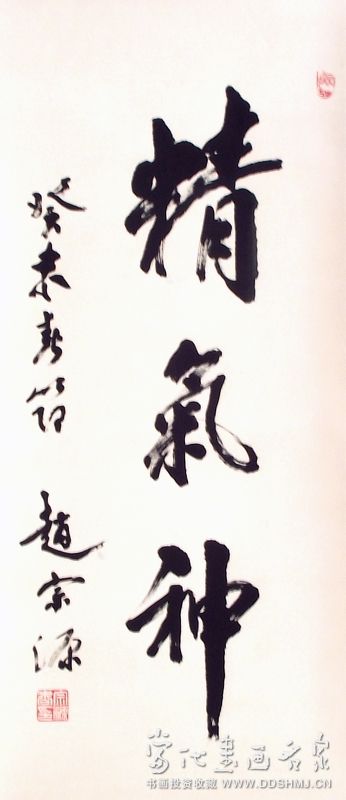 精氣神
癸未春節 趙宗源
當代書画名家
书画投资收藏 WWW.DDSHMJ.CN